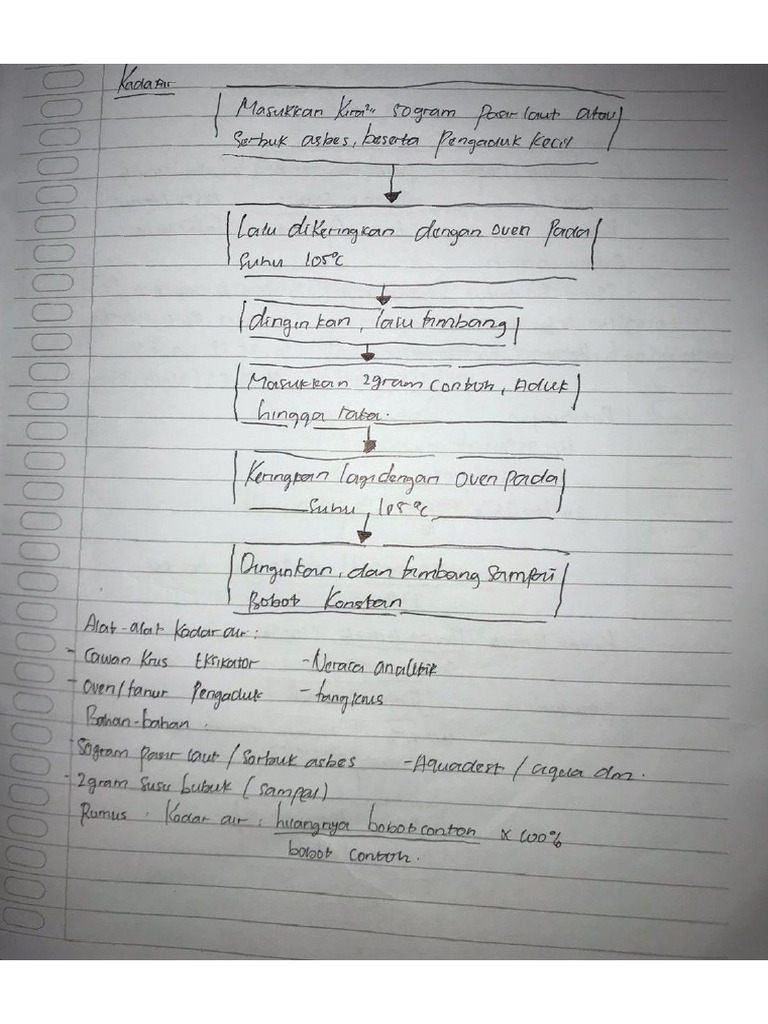 Kadar Air
Masukkan Kira²" 50gram Pasir laut atau
Serbuk asbes, beserta Pengaduk Kecil
Lalu dikeringkan dengan oven Pada
Suhu 105°C
dinginkan, lalu timbang
Masukkan 2gram contoh, Aduk
hingga rata.
Keringkan lagi dengan oven Pada
Suhu, 105°C
Dinginkan, dan timbang Sampai
Bobot Konstan
Alat-alat Kadar air:
- Cawan Krus Eksikator - Neraca analitik
- Oven/tanur Pengaduk - tangkrus
Bahan-bahan.
- 50gram pasir laut / Serbuk asbes - Aquadest / aqua dm.
- 2gram Susu bubuk (Sampel)
Rumus. Kadar air: hilangnya bobot contoh x 100%
bobot contoh.